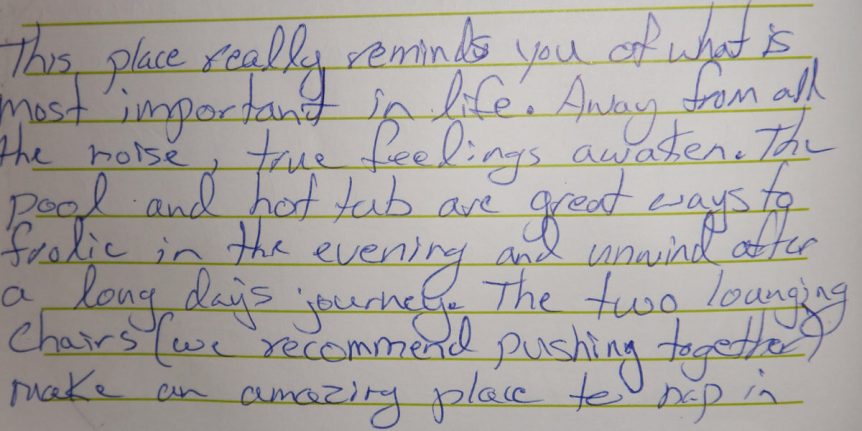 This place really reminds you of what is
most important in life. Away from all
the noise, true feelings awaken. The
pool and hot tub are great ways to
frolic in the evening and unwind after
a long day's journey. The two lounging
chairs (we recommend pushing together)
make an amazing place to nap in